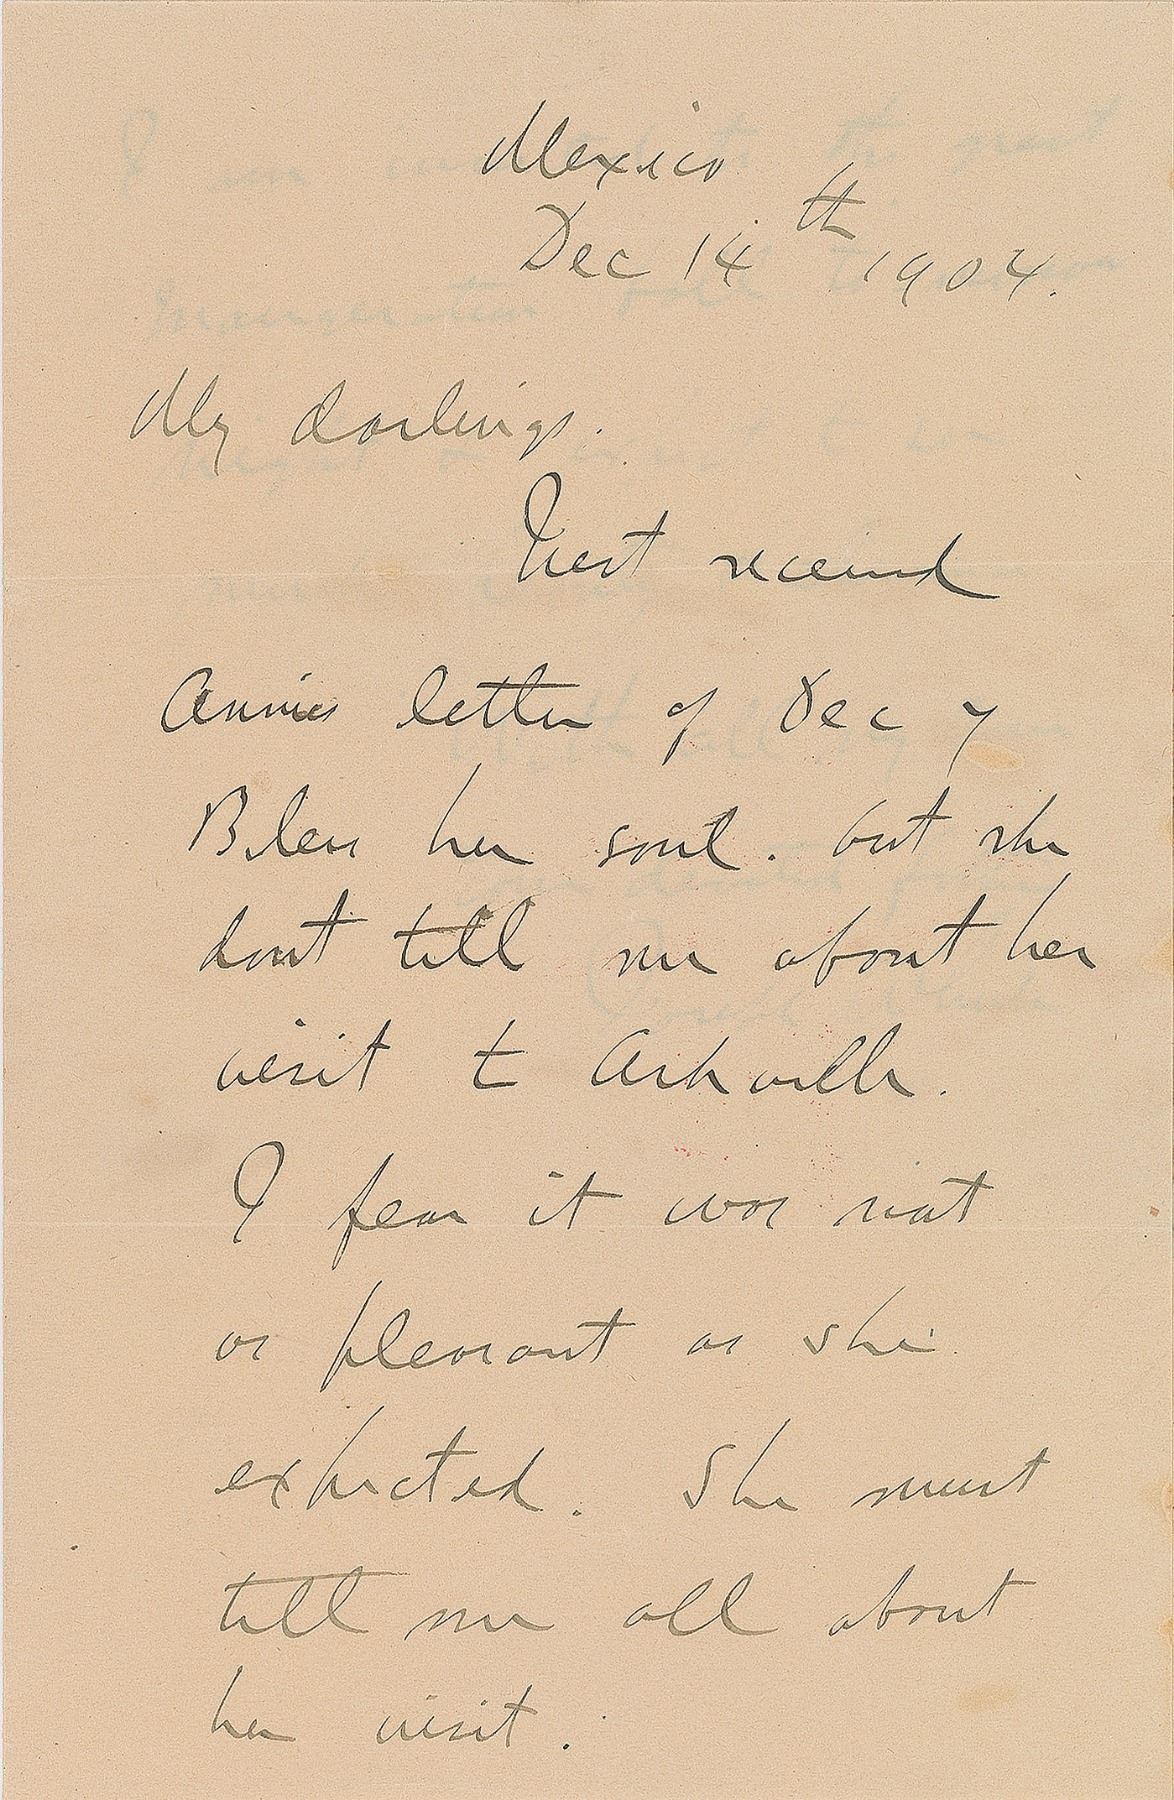 Mexico
Dec 14th 1904.
My darlings.
Next received
Annies letter of Dec 7
Bless her soul. but she
dont tell me about her
visit to Ashville.
I fear it was not
as pleasant as she
expected. She must
tell me all about
her visit.